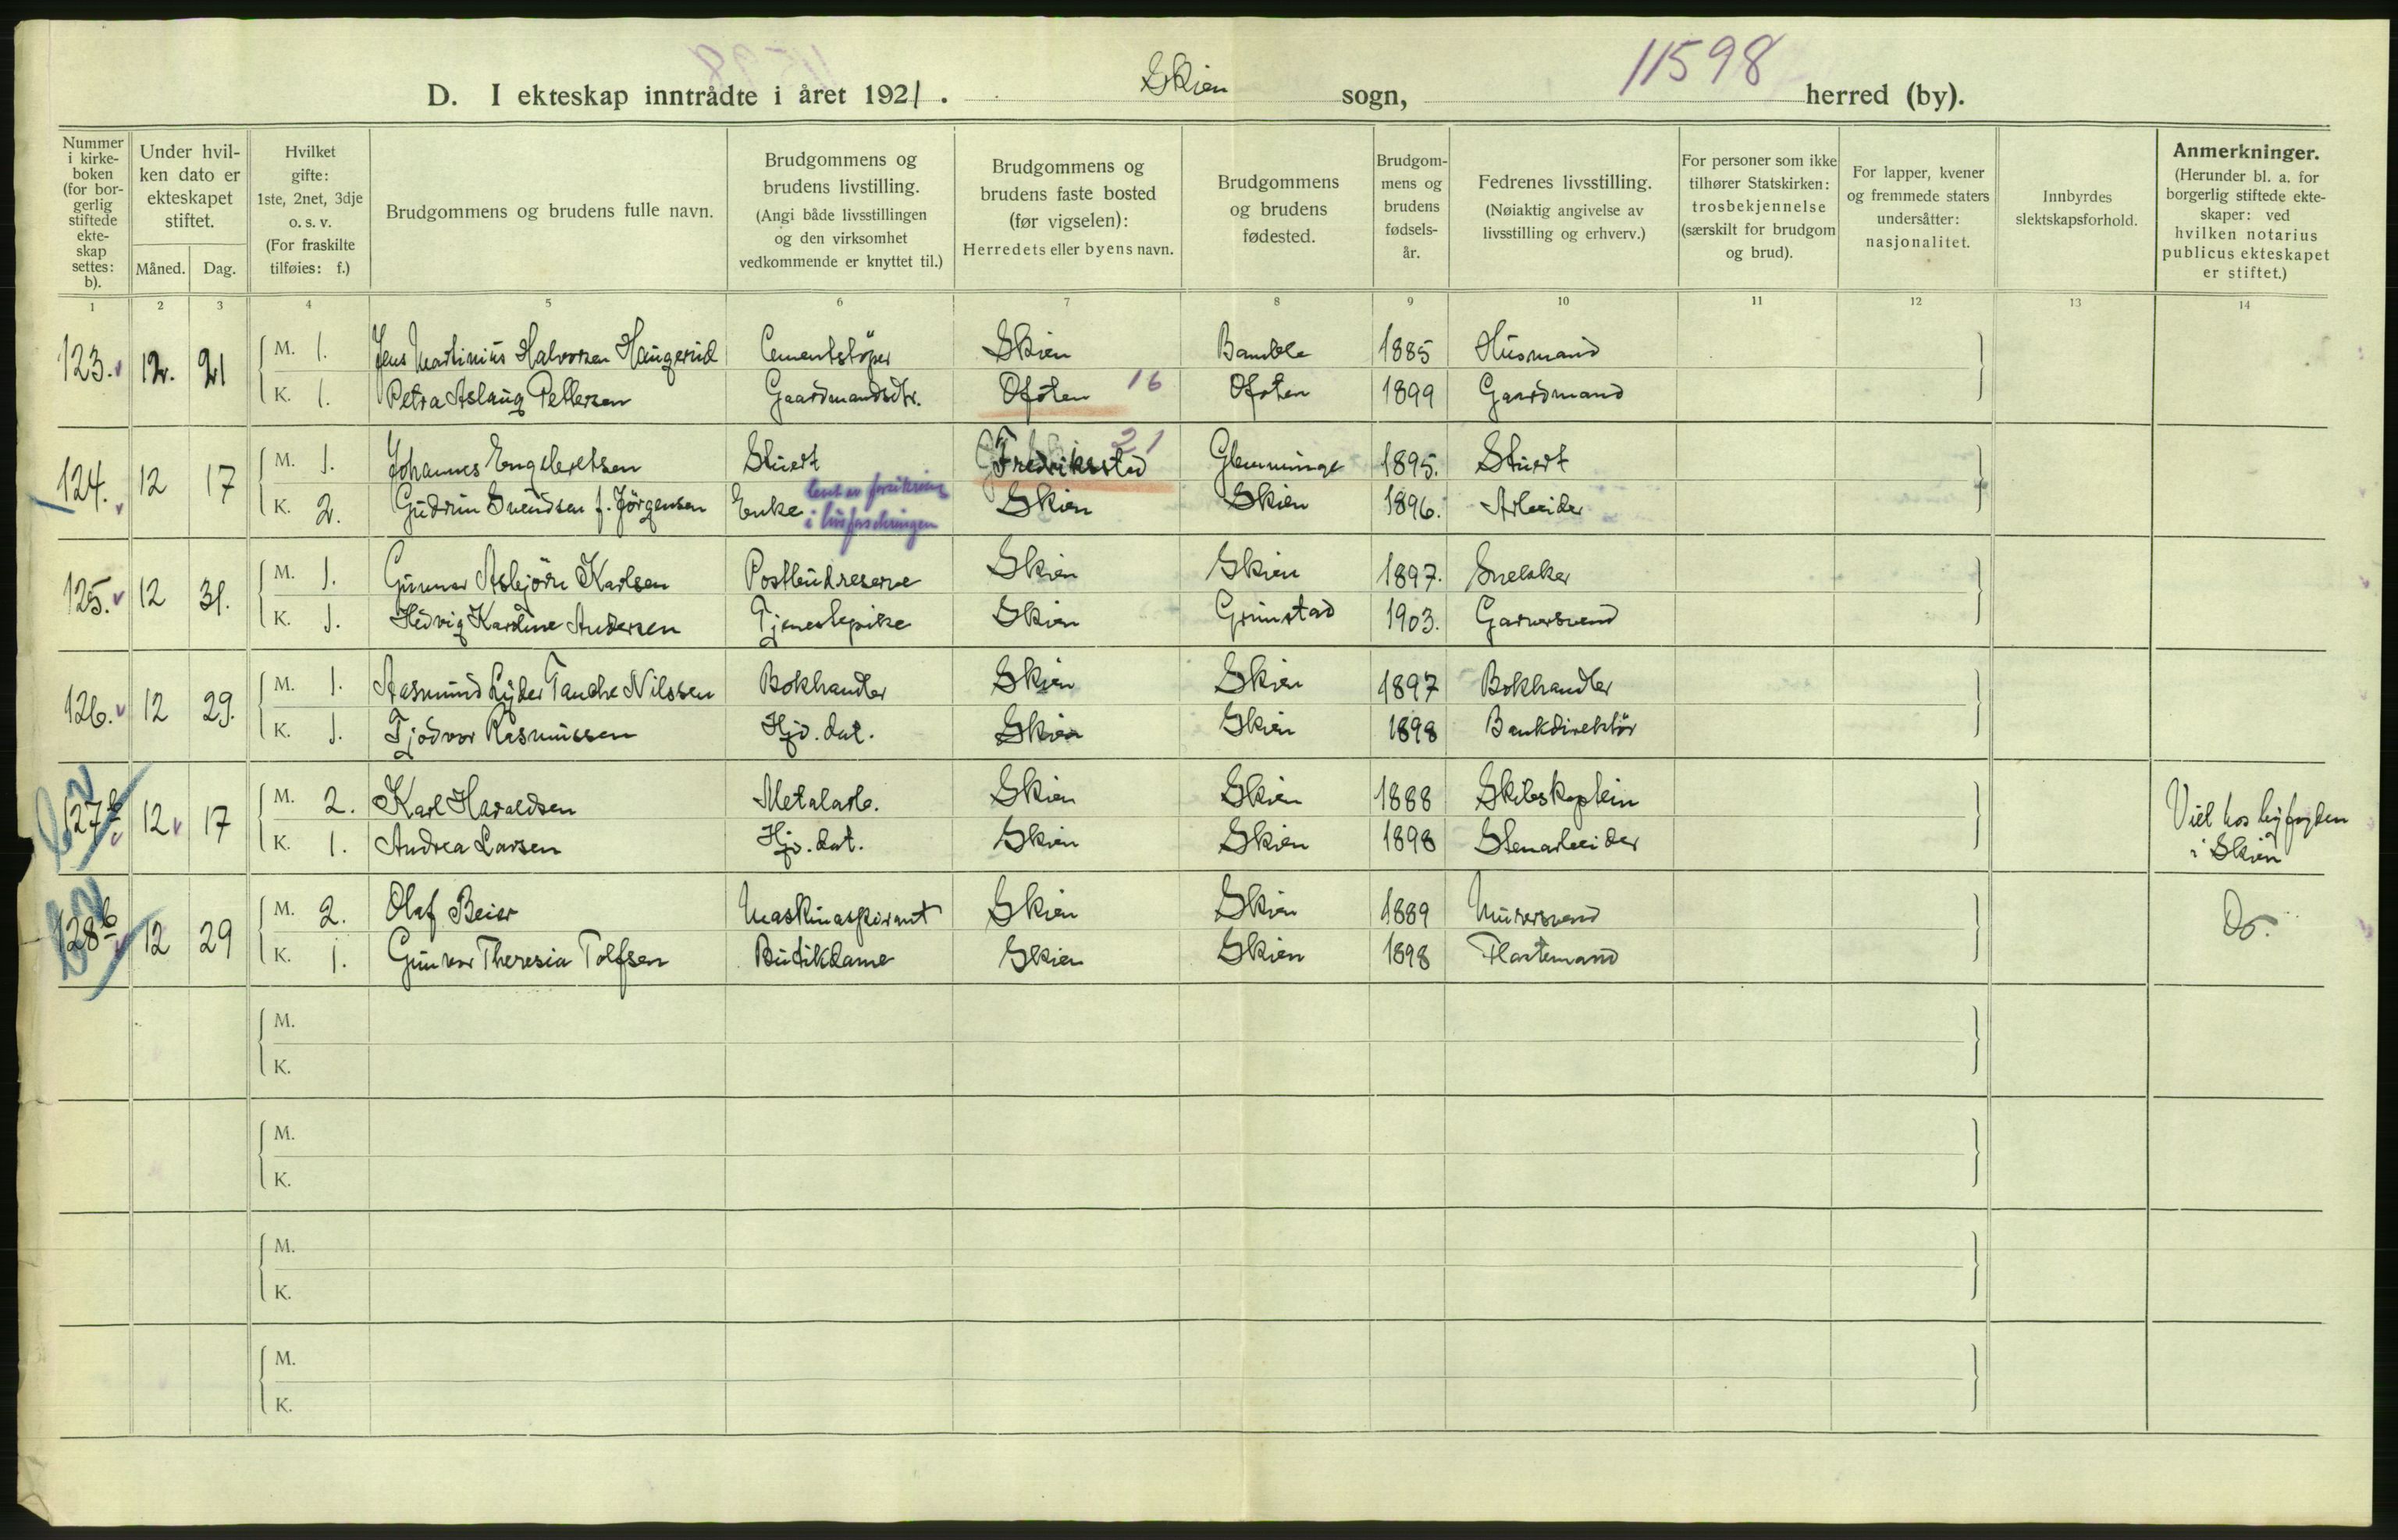 11598
D. I ekteskap inntrådte i året 1921. Skien sogn, herred (by).
Nummer i kirkeboken (for borgerlig stiftede ekteskap settes: b).
Under hvilken dato er ekteskapet stiftet.
Måned. Dag.
Hvilket gifte: 1ste, 2net, 3dje o. s. v. (For fraskilte tilføies: f.)
Brudgommens og brudens fulle navn.
Brudgommens og brudens livstilling. (Angi både livsstillingen og den virksomhet vedkommende er knyttet til.)
Brudgommens og brudens faste bosted (før vigselen): Herredets eller byens navn.
Brudgommens og brudens fødested.
Brudgommens og brudens fødselsår.
Fedrenes livsstilling. (Nøiaktig angivelse av livsstilling og erhverv.)
For personer som ikke tilhører Statskirken: trosbekjennelse (særskilt for brudgom og brud).
For lapper, kvener og fremmede staters undersåtter: nasjonalitet.
Innbyrdes slektskapsforhold.
Anmerkninger. (Herunder bl. a. for borgerlig stiftede ekteskaper: ved hvilken notarius publicus ekteskapet er stiftet.)
1 2 3 4 5 6 7 8 9 10 11 12 13 14
123. 12. 21 M. 1. Jens Martinius Halvorsen Haugerud Cementstöper Skien Bamble 1885 Husmand
K. 1. Petra Aslaug Pettersen Gaardmandsdtr. Ofoten 16 Ofoten 1899 Gaardmand
124. 12 17 M. 1. Johannes Engebretsen Stuert Fredriksstad 21 Glemminge 1895. Stuert
K. 2. Gudrun Svendsen f. Jörgensen Enke Skien Skien 1896. Arbeider
125. 12 31. M. 1. Gunnar Asbjörn Karlsen Postbudreserve Skien Skien 1897. Snekker
K. 1. Hedvig Kardine Andersen Tjenestepike Skien Grimstad 1903. Garversvend
126. 12 29. M. 1. Aasmund Lyder Tanche Nilssen Bokhandler Skien Skien 1897 Bokhandler
K. 1. Tjodvor Rasmussen Hjv. dat. Skien Skien 1898 Bankdirektör
127 b 12 17 M. 2. Karl Haraldsen Metalarb. Skien Skien 1888 Skibskaptein Viet hos byfogden
K. 1. Andrea Larsen Hjv. dat. Skien Skien 1898 Stenarbeider i Skien
128 b 12 29 M. 2. Olaf Beier Maskinaspirant Skien Skien 1889 Murersvend Do.
K. 1. Gunvor Theresia Tolfsen Butikdame Skien Skien 1898 Flöttemand
M.
K.
M.
K.
M.
K.
M.
K.